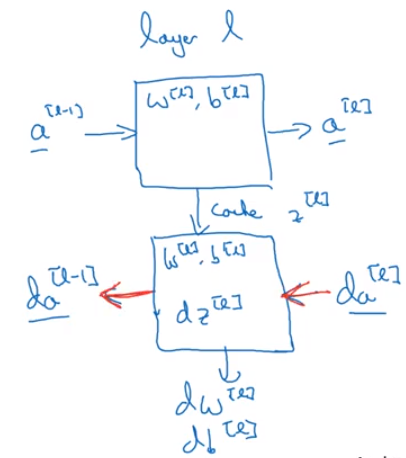 layer l
w^[l], b^[l]
a^[l-1] a^[l]
cache z^[l]
w^[l], b^[l]
da^[l-1] dz^[l] da^[l]
dw^[l]
db^[l]